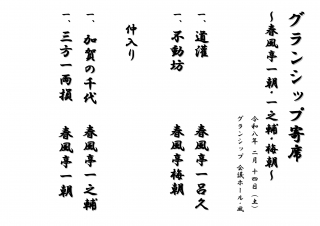 グランシップ寄席
～春風亭一朝・一之輔・梅朝～
令和八年 二月 十四日（土）
グランシップ 会議ホール・風
一、道灌　春風亭一呂久
一、不動坊　春風亭梅朝
仲入り
一、加賀の千代　春風亭一之輔
一、三方一両損　春風亭一朝